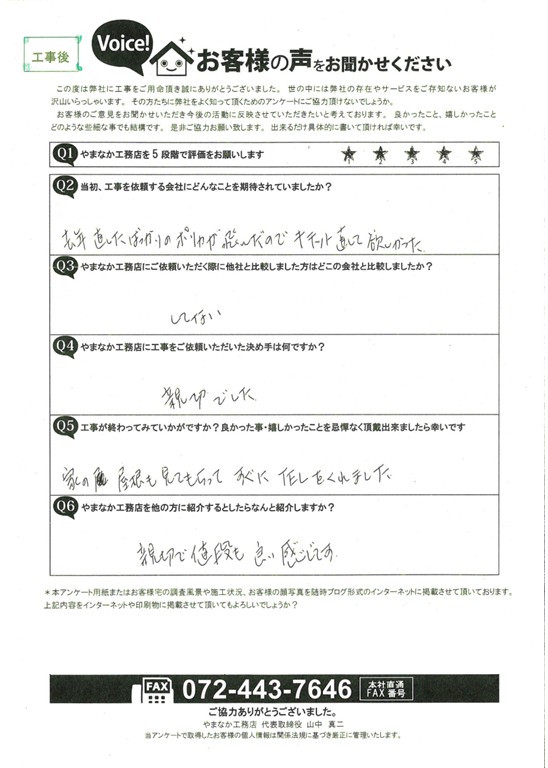 工事後
Voice!
お客様の声をお聞かせください
この度は弊社に工事をご用命頂き誠にありがとうございました。 世の中には弊社の存在やサービスをご存知ないお客様が
沢山いらっしゃいます。 その方たちに弊社をよく知って頂くためのアンケートにご協力頂けないでしょうか。
お客様のご意見をお聞かせいただき今後の活動に反映させていただきたいと考えております。 良かったこと、嬉しかったこと
どのような些細な事でも結構です。 是非ご協力お願い致します。 出来るだけ具体的に書いて頂ければ幸いです。
Q1 やまなか工務店を5段階で評価をお願いします
1 2 3 4 5
Q2 当初、工事を依頼する会社にどんなことを期待されていましたか？
去年直したばかりのポリカが飛んだのでキチット直して欲しかった
Q3 やまなか工務店にご依頼いただく際に他社と比較しました方はどこの会社と比較しましたか？
してない
Q4 やまなか工務店に工事をご依頼いただいた決め手は何ですか？
親切でした
Q5 工事が終わってみていかがですか？良かった事・嬉しかったことを忌憚なく頂戴出来ましたら幸いです
家の 屋根も見てもらってすぐに してくれました
Q6 やまなか工務店を他の方に紹介するとしたらなんと紹介しますか？
親切で値段も良い感じです
＊本アンケート用紙またはお客様宅の調査風景や施工状況、お客様の顔写真を随時ブログ形式のインターネットに掲載させて頂いております。
上記内容をインターネットや印刷物に掲載させて頂いてもよろしいでしょうか？
FAX 072-443-7646 本社直通
FAX番号
ご協力ありがとうございました。
やまなか工務店 代表取締役 山中 真二
当アンケートで取得したお客様の個人情報は関係法規に基づき厳正に管理いたします。